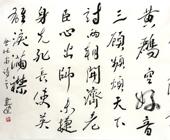 黃鸝空好音
三顧頻煩天下
計兩朝開濟老
臣心出師未捷
身先死長使英
雄淚滿襟